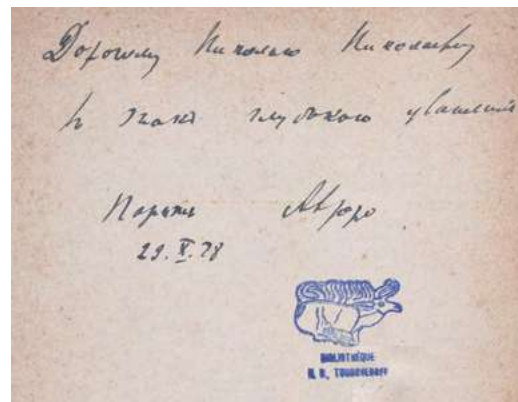 Дорогому Николаю Николаевичу
в знак глубокого уважения
Париж Автор
29.X.78
BIBLIOTHÈQUE